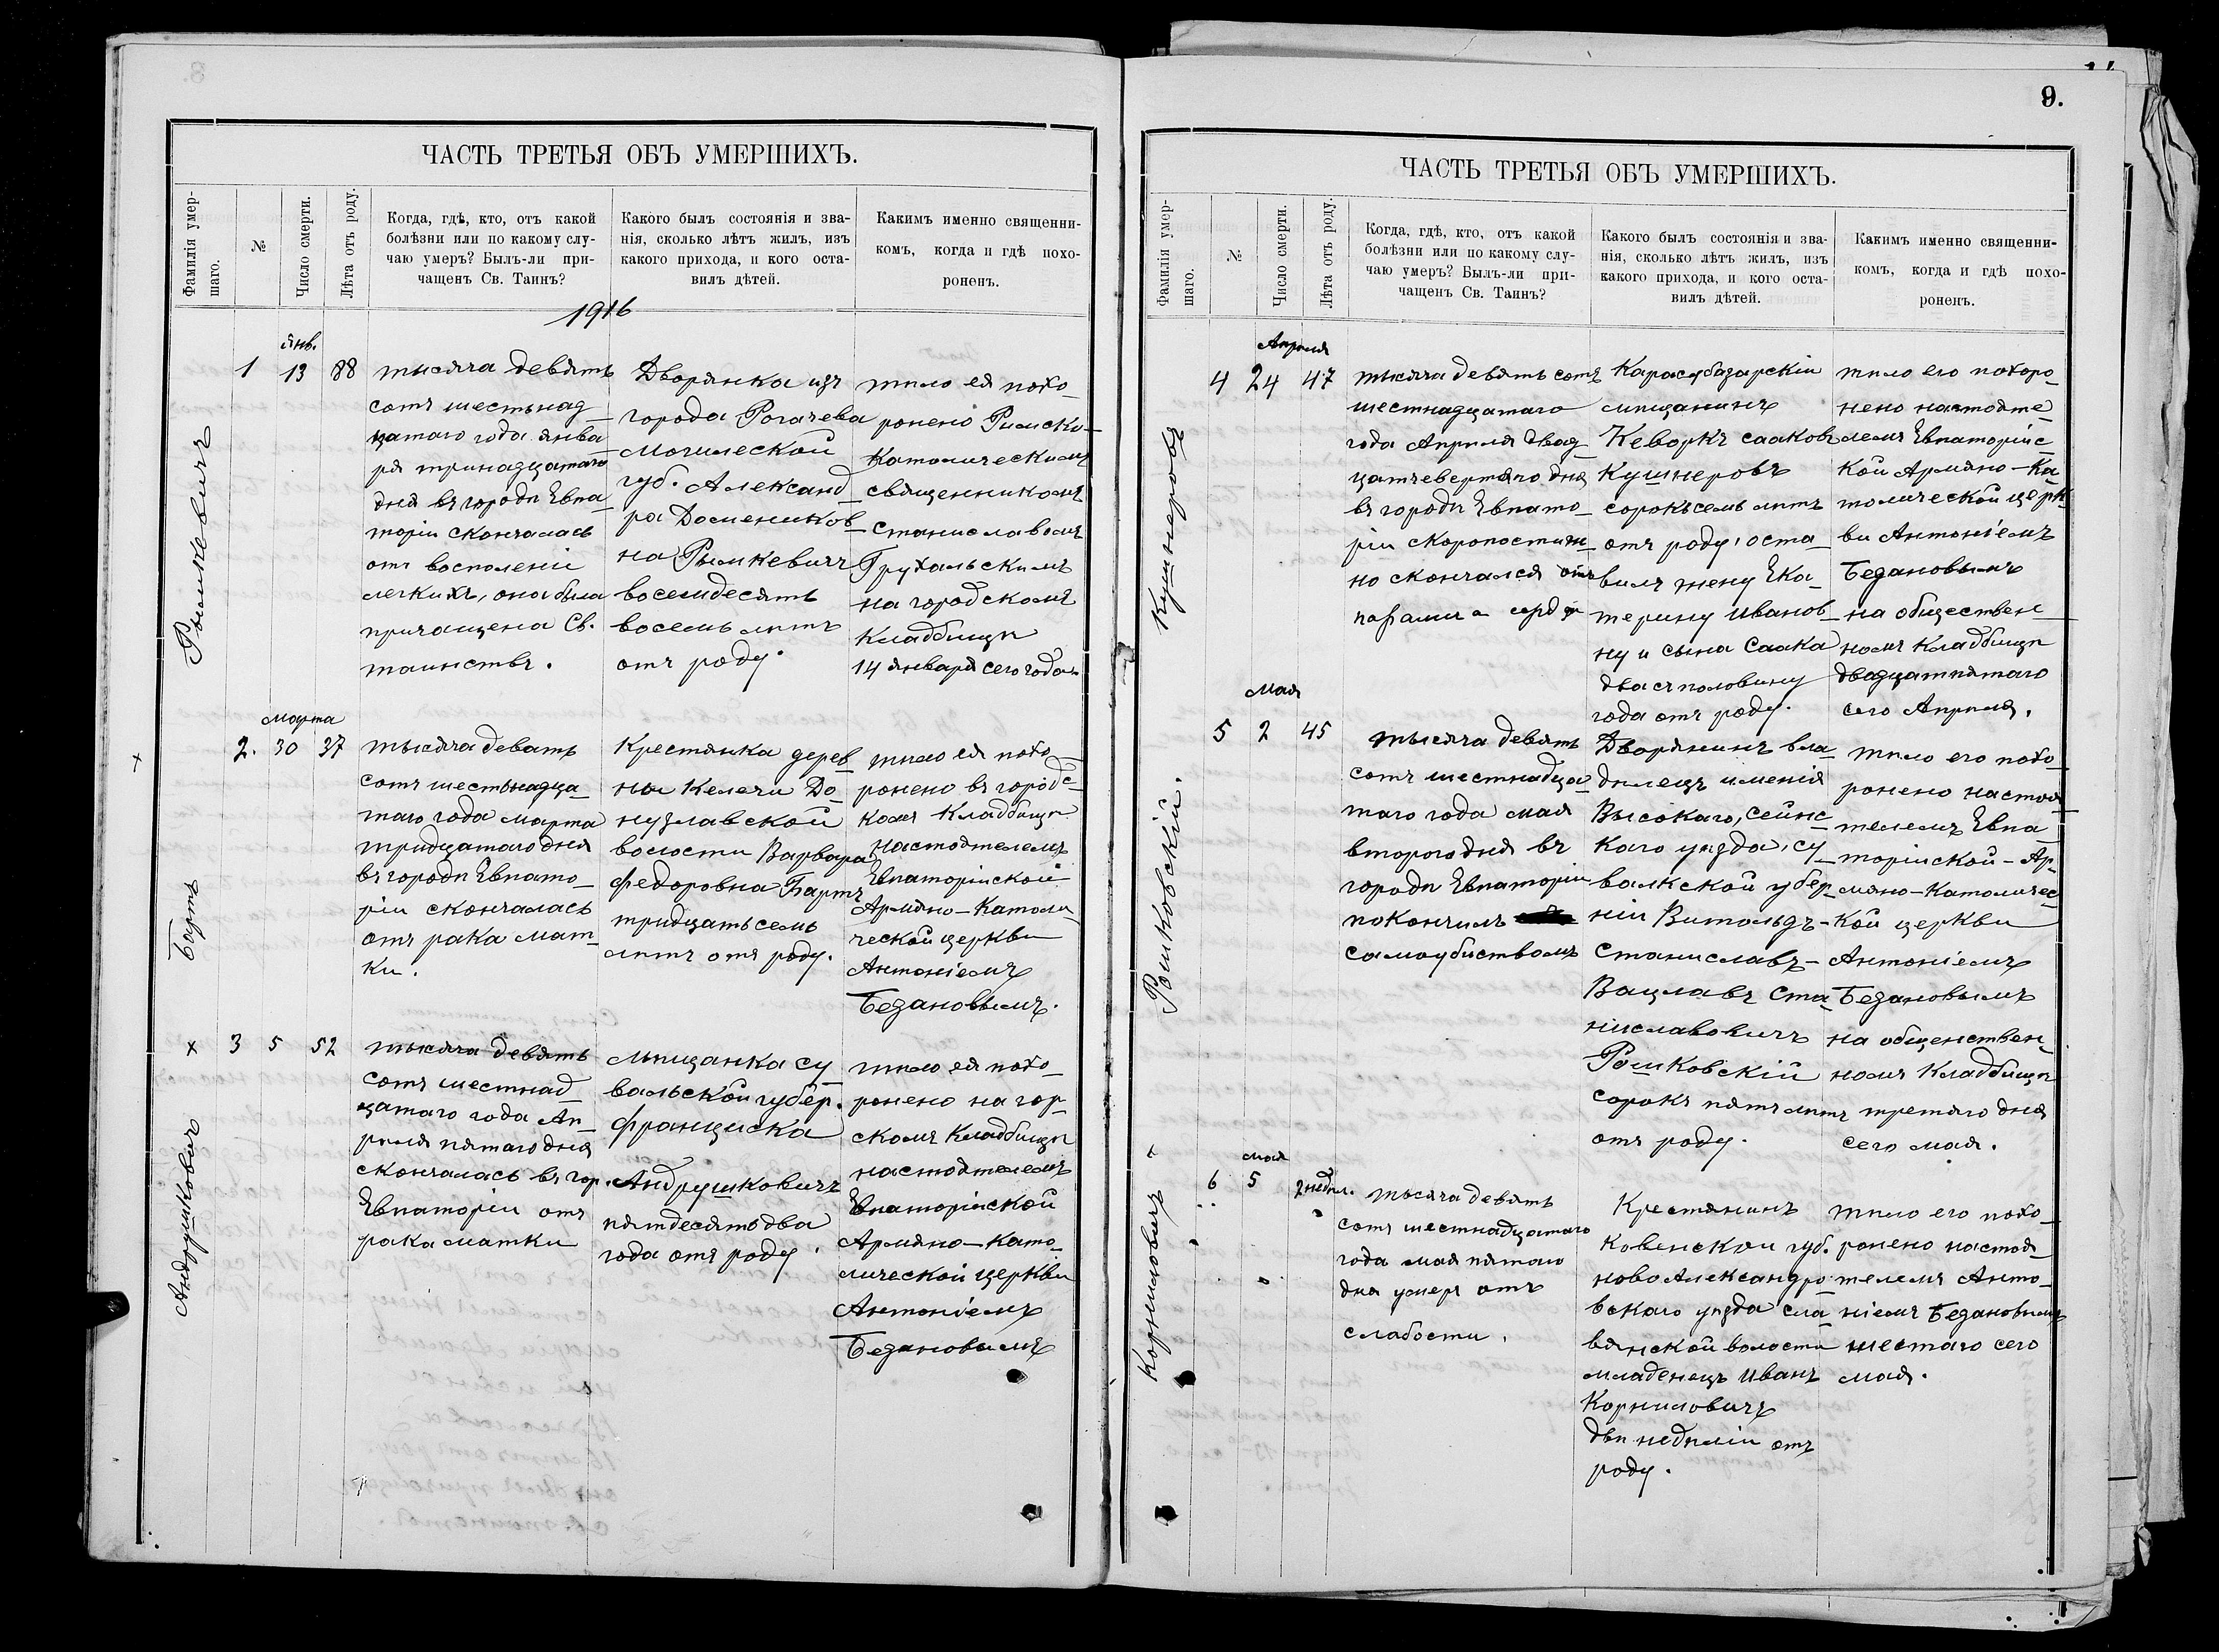 ЧАСТЬ ТРЕТЬЯ ОБЪ УМЕРШИХЪ.
Фамилія умер-
шаго.
№
Число смерти.
Лѣта отъ роду.
Когда, гдѣ, кто, отъ какой
болѣзни или по какому слу-
чаю умеръ? Былъ-ли при-
чащенъ Св. Таинъ?
Какого былъ состоянія и зва-
нія, сколько лѣтъ жилъ, изъ
какого прихода, и кого оста-
вилъ дѣтей.
Какимъ именно священни-
комъ, когда и гдѣ похо-
роненъ.
1916
Рымкевичъ
1
Янв.
13
88
тысяча девять
сотъ шестьнад
цатаго года янва
ря тринадцатаго
дня въ городѣ Евпа
торіи скончалась
отъ восполеніи
легкихъ, она была
причащена Св.
таинствъ.
Дворянка изъ
города Рогачева
Могилеской
губ. Александ
ра Домеников
на Рымкевичъ
восемдесятъ
восемь лѣтъ
отъ роду.
тѣло ея похо
ронено Римско-
Католическимъ
священникомъ
Станиславомъ
Грухальскимъ
на городскомъ
Кладбищѣ
14 января сего года
Бартъ
2.
Марта
30
37
тысяча девать
сотъ шестьнадца
таго года марта
тридцатаго дня
въ городѣ Евпато
ріи скончалась
отъ рака мат
ки.
Крестянка дерев
ны Келечи До
нузлавской
волости Варвара
федоровна Бартъ
тридцать семь
лѣтъ отъ роду.
тѣло ея похо
ронено въ городс
комъ Кладбищѣ
настоятелемъ
Евпаторіиской
Армяно-Католи
ческой церкви
Антоніемъ
Безановымъ.
Андрушковичъ
3
5
52
тысяча девять
сотъ шестнад
цатаго года Ап
рѣля пятаго дня
скончалась въ гор.
Евпаторіи отъ
рака матки
Мѣщанка су
вальской губер.
франциска
Андрушковичъ
пятдесятъ два
года отъ роду.
тѣло ея похо
ронено на гор
скомъ Кладбищѣ
настоятелемъ
Евпаторіиской
Армяно-Като
лической церкви
Антоніемъ
Безановымъ
9.
ЧАСТЬ ТРЕТЬЯ ОБЪ УМЕРШИХЪ.
Фамилія умер-
шаго.
№
Число смерти.
Лѣта отъ роду.
Когда, гдѣ, кто, отъ какой
болѣзни или по какому слу-
чаю умеръ? Былъ-ли при-
чащенъ Св. Таинъ?
Какого былъ состоянія и зва-
нія, сколько лѣтъ жилъ, изъ
какого прихода, и кого оста-
вилъ дѣтей.
Какимъ именно священни-
комъ, когда и гдѣ похо-
роненъ.
Кушнеровъ
4
Апрѣля
24
47
тысяча девять сотъ
шестнадцатаго
года Апрѣля двад
цатчевертяго дня
въ городѣ Евпато
ріи скоропостиж
но скончался отъ
Карасубазарскіи
мѣщанинъ
Кеворкъ сааковъ
Кушнеровъ
сорокъ семь лѣтъ
отъ роду, оста
вилъ жену Ека
терину Иванов
ну и сына Саака
два съ половину
года отъ роду.
тѣло его похоро
нено настояте
лемъ Евпаторійс
кой Армяно-Ка
толической церк
ви Антоніемъ
Безановымъ
на обществен
номъ Кладбищѣ
двадцатпятаго
сего Апрѣля.
Рошковскій.
5
Мая
2
45
тысяча девять
сотъ шестнадца
таго года мая
второго дня въ
городѣ Евпаторіи
покончилъ
самоубиствомъ
Дворянинъ вла
дѣлецъ именія
Высокаго, сейнс
каго уѣзда, су
валкской губер
ніи Витольдъ-
Станиславъ-
Вацлавъ Ста
ниславовичъ
Рошковскій
сорокъ пять лѣтъ
отъ роду.
тѣло его похо
ронено настоя
телемъ Евпа
торійской-Ар
мяно-Католичес
кой церкви
Антоніемъ
Безановымъ
на общенствен
номъ Кладбищѣ
третяго дня
сего мая.
Корниловичъ
6
Мая
5
2 недѣл.
тысяча девять
сотъ шестнадцатаго
года мая пятаго
дня умеръ отъ
слабости.
Крестянинъ
Ковенской губ.
ново Александро
вскаго уѣзда сла
вянской волости
младенецъ Иванъ
Корниловичъ
двѣ недѣліи отъ
роду.
тѣло его похо
ронено настоя
телемъ Анто
ніемъ Безановымъ
шестаго сего
мая.